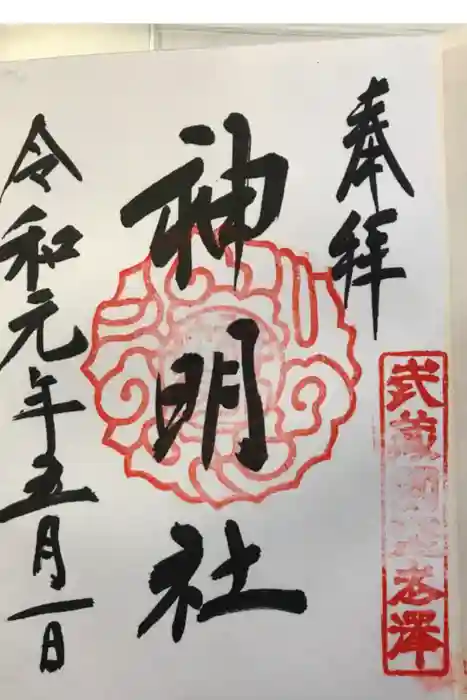 奉拝
武蔵國金澤
神明社
令和元年五月一日